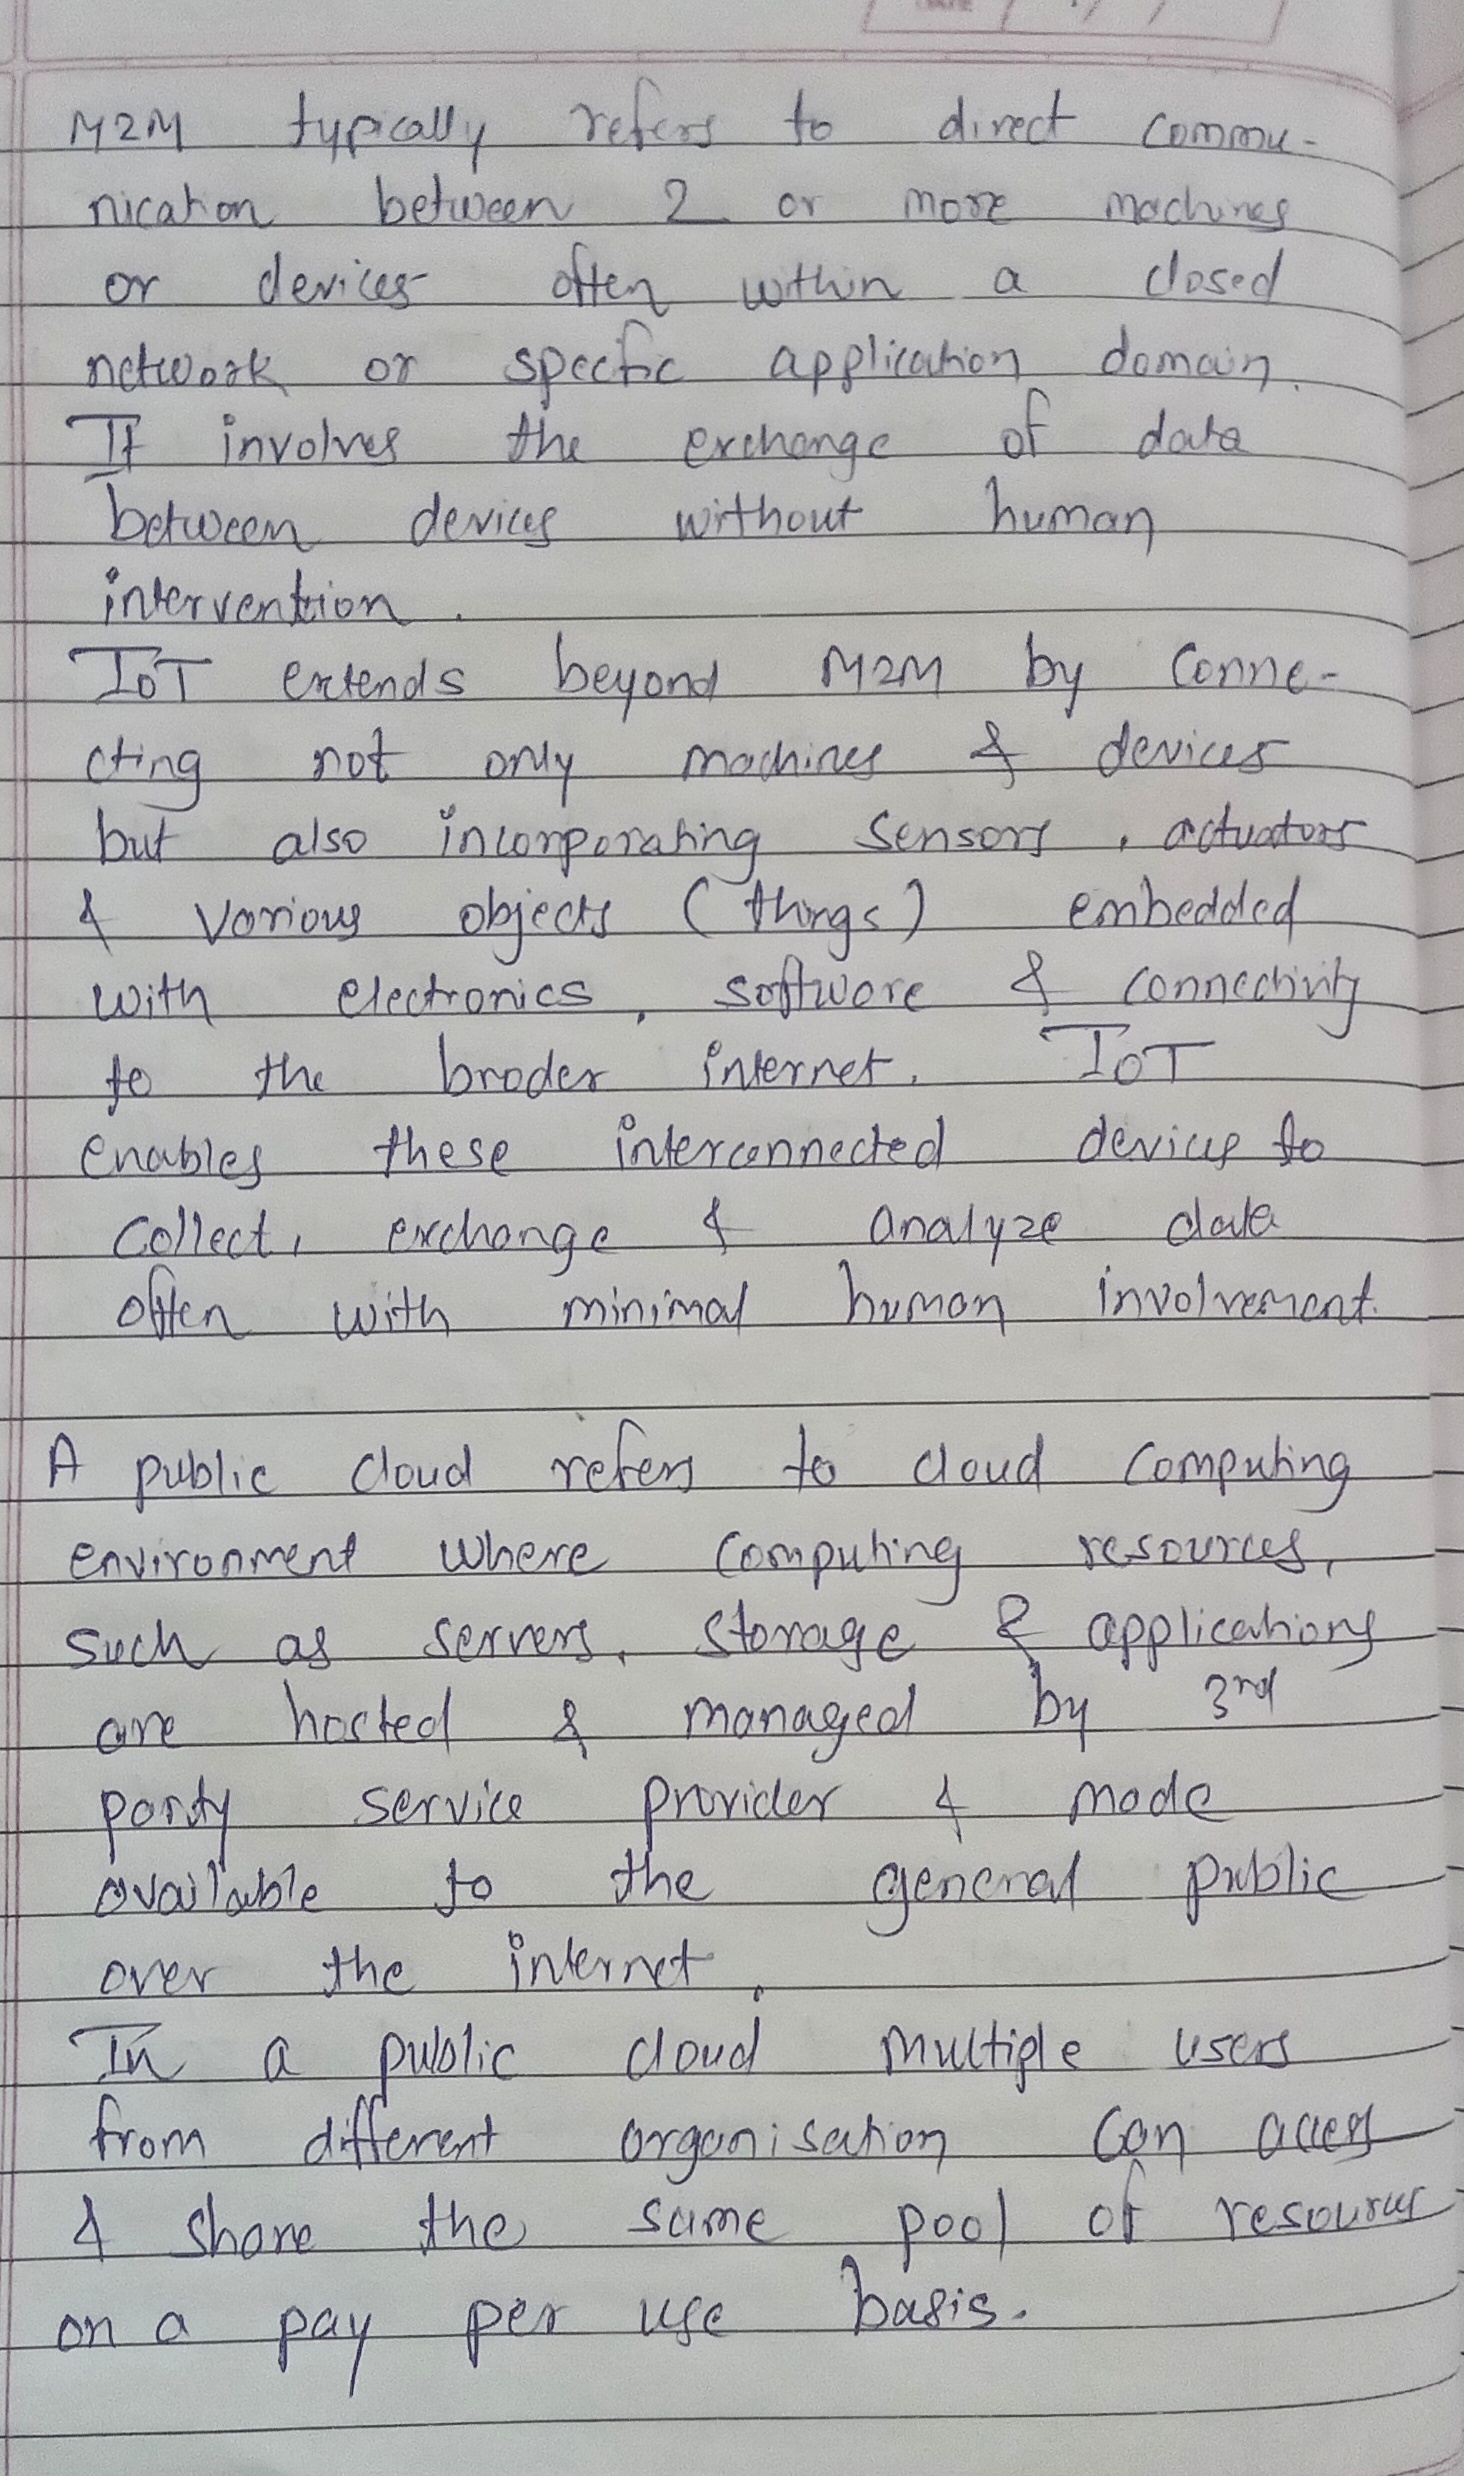 DATE
M2M typically refers to direct commu-
nication between 2 or more machines
or devices often within a closed
network or specfic application domain.
It involves the exchange of data
between devices without human
intervention.
IoT extends beyond M2M by conne-
cting not only machines & devices
but also incorporating sensors, actuators
& various objects (things) embedded
with electronics, software & connectivity
to the broder internet. IoT
enables these interconnected devices to
collect, exchange & analyze data
often with minimal human involvement.
A public cloud refers to cloud computing
environment where computing resources,
such as servers, storage & applications
are hosted & managed by 3rd
party service provider & made
available to the general public
over the internet.
In a public cloud multiple users
from different organisation can access
& share the same pool of resources
on a pay per use basis.